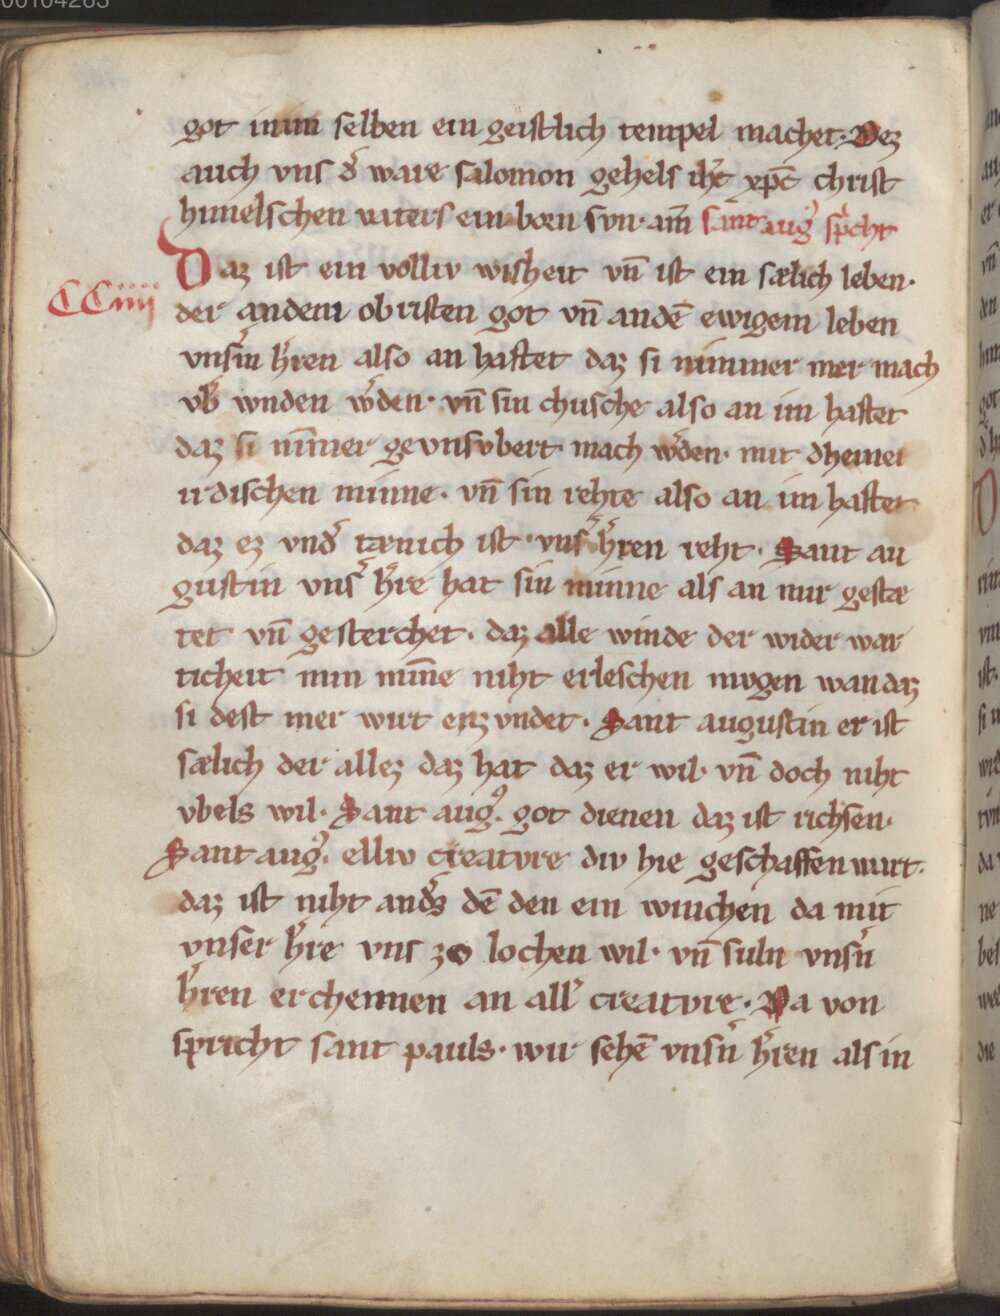 00104263
got inim selben ein geistlich tempel machet. Dez
auch vns dˀ ware salomon gehels ihc̄ xp̄c christ
himelschen vaters ein born svn. am̄ sant augˀ spͥcht
CCiiij
Daz ist ein volliv wisheit vn̄ ist ein sælich leben.
der andem obristen got vn̄ andē ewigem leben
vnsˀm hˀren also an haftet daz si nimmer mer mach
vbˀ wnden wˀden. vn̄ sin chusche also an im haftet
daz si nim̄er gevnsvbert mach wˀden. mit dheiner
irdischen minne. vn̄ sin rehte also an im haftet
daz ez vndˀ tænich ist. vnsˀ hˀren reht. Sant au
gustin vnsˀ hˀre hat sin minne als an mir gestæ
tet vn̄ gesterchet. daz alle winde der wider war
ticheit min min̄e niht erleschen mvgen wan daz
si dest mer wirt enzvndet. Sant augustin er ist
sælich der allez daz hat daz er wil. vn̄ doch niht
vbels wil. Sant augꝰ. got dienen daz ist richsen.
Sant augꝰ. elliv creatvre div hie geschaffen wart.
daz ist niht andˀs dē den ein winchen da mit
vnser hˀre vns zo lochen wil. vn̄ suln vnsˀn
hˀren erchennen an allˀ creatvre. Da von
spricht sant pauls. wir sehē vnsˀn hˀren als in